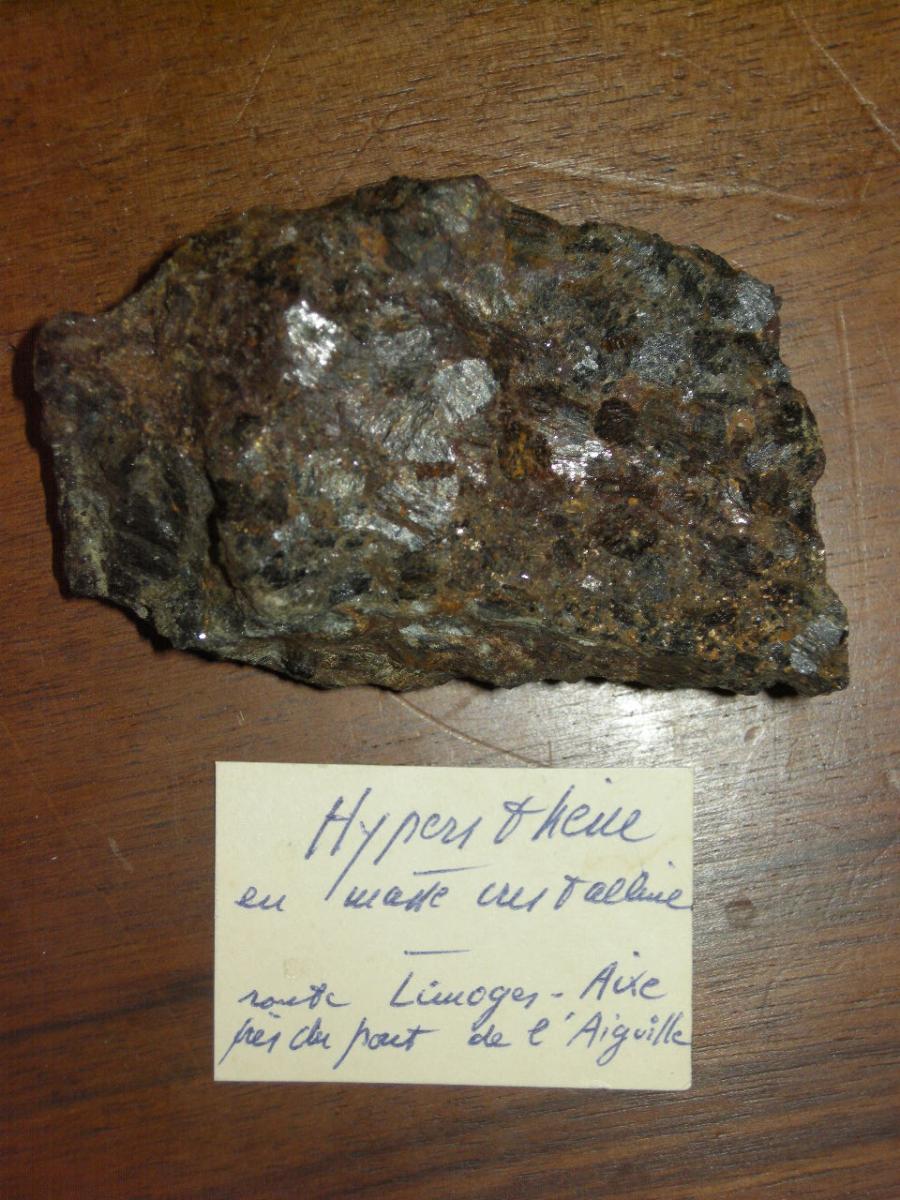 Hypersthène
en masse cristalline
route Limoges - Aixe
près du pont de l'Aiguille